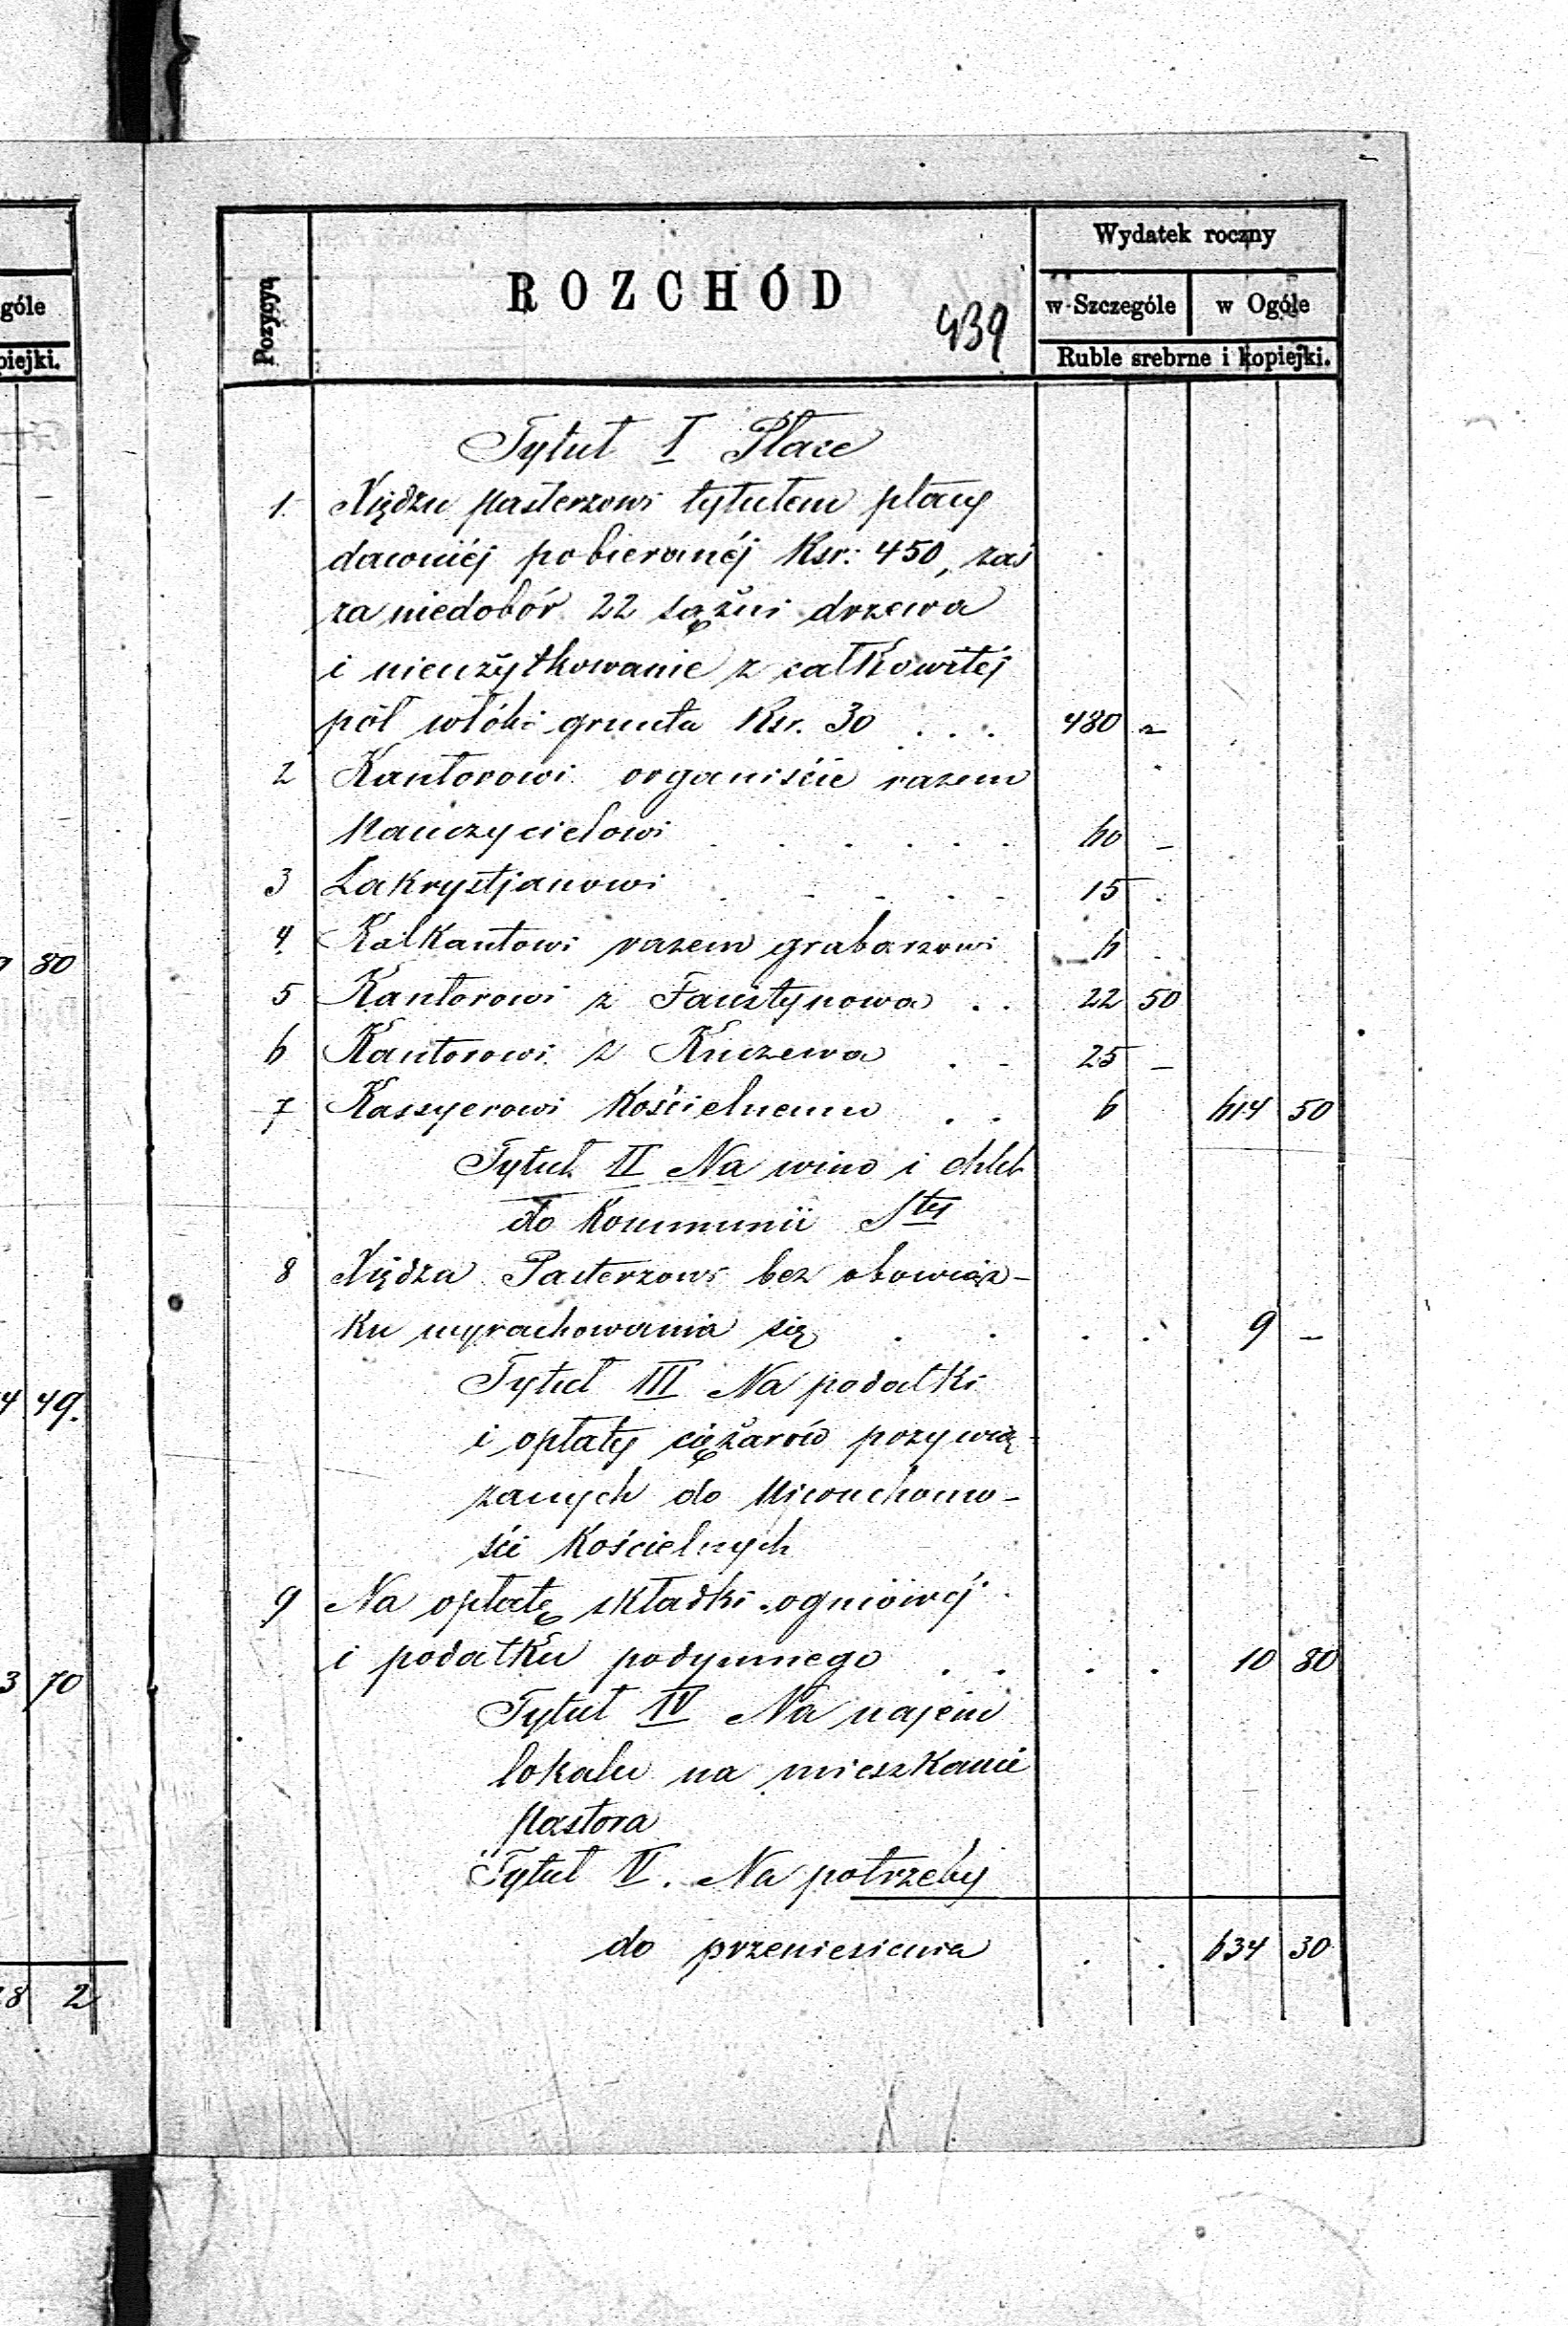 góle
piejki.
80
4 49.
3 70
28 2
Pozycya
ROZCHÓD
439
Wydatek roczny
w Szczególe w Ogóle
Ruble srebrne i kopiejki.
Tytuł I Płace
1. Xiędzu Pasterzowi tytułem płacy
dawniéj pobieranéj Rsr: 450, zaś
za niedobór 22 sążni drzewa
i nieużytkowanie z całkowitéj
pół włóki gruntu Rsr. 30 . . . 480 –
2 Kantorowi organiście razem
Nauczycielowi . . . . . 60 –
3 Zakrystjanowi . . . . . 15 .
4. Kalkantowi razem grabarzowi 6 .
5 Kantorowi z Faustynowa . . 22 50
6 Kantorowi z Kuczewa . . 25 –
7 Kassyerowi Kościelnemu . . 6 614 50
Tytuł II Na wino i chleb
do Kommunii Stej
8 Xiędza Pasterzowi bez obowiąz-
ku wyrachowania się . . . . 9 –
Tytuł III Na podatki
i opłaty ciężarów przywią-
zanych do Nieruchomo-
ści Kościelnych
9 Na opłatę składki ogniowéj
i podatku podymnego . . . . 10 80
Tytuł IV Na najem
lokalu na mieszkanie
Pastora
Tytuł V. Na potrzeby
do przeniesienia . . 634 30